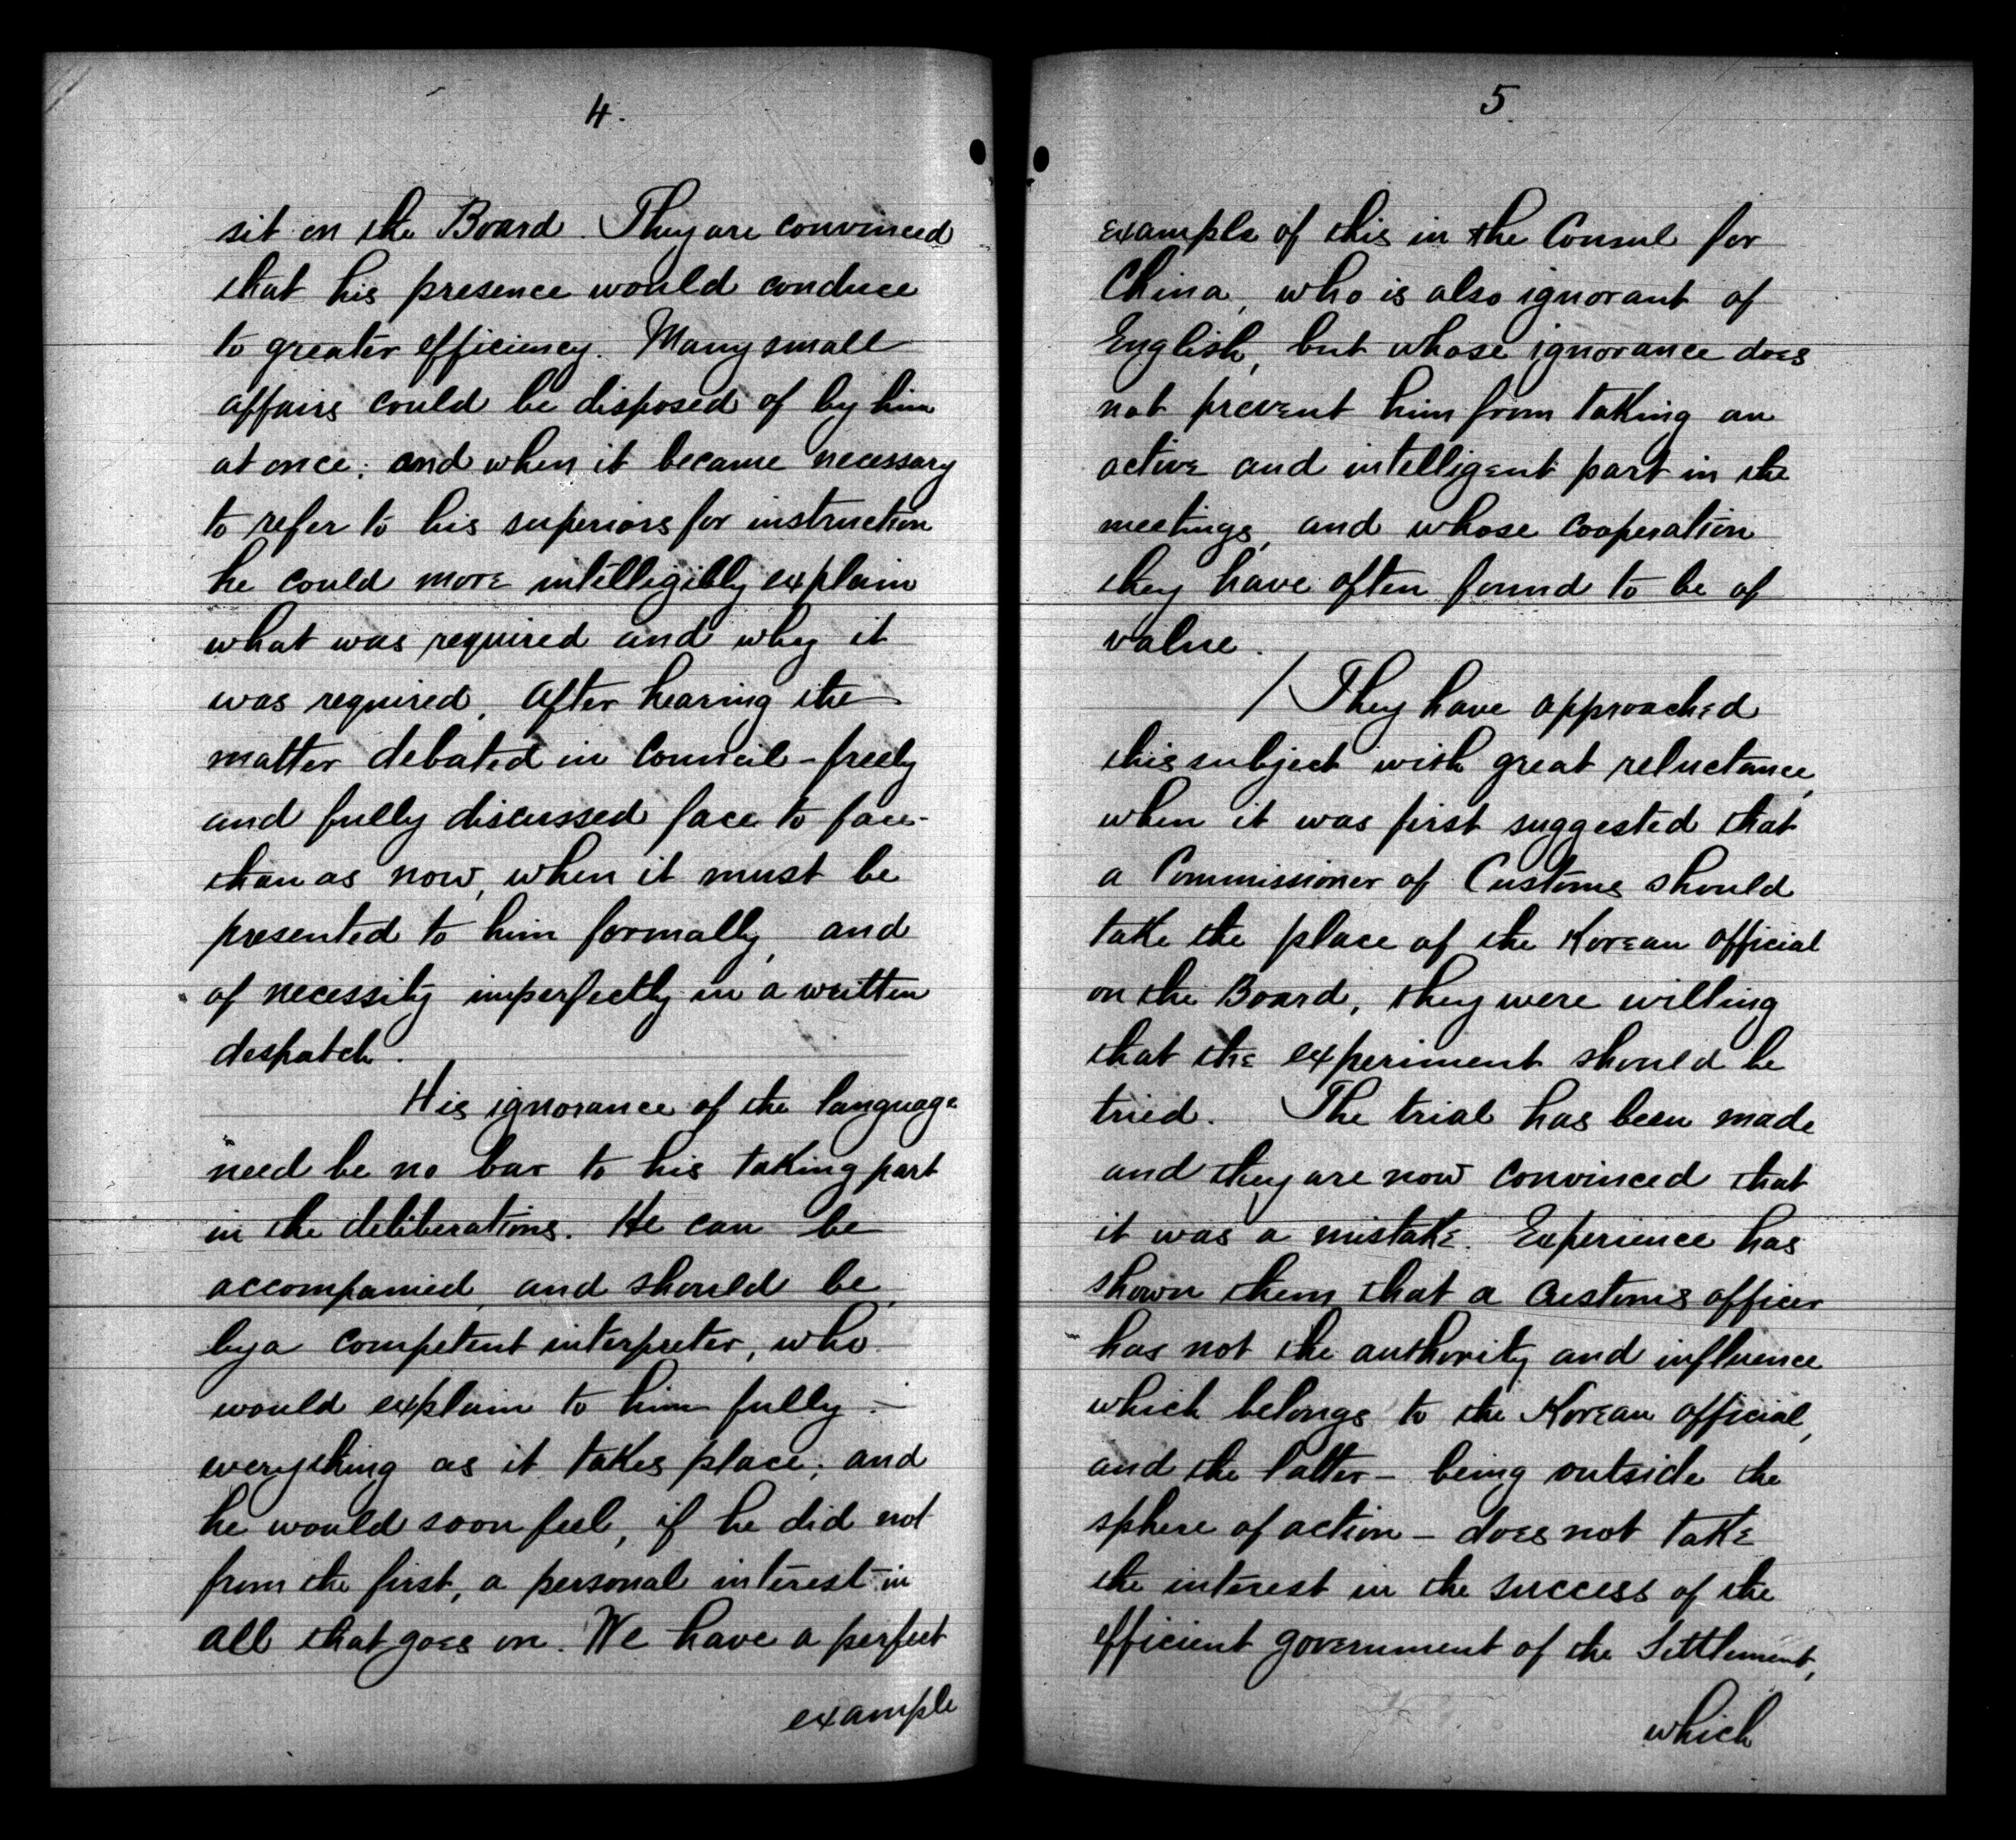 4.
sit on the Board. They are convinced
that his presence would conduce
to greater efficiency. Many small
affairs could be disposed of by him
at once; and when it became necessary
to refer to his superiors for instruction
he could more intelligibly explain
what was required and why it
was required, after hearing the
matter debated in Council - freely
and fully discussed face to face -
than as now, when it must be
presented to him formally, and
of necessity imperfectly in a written
despatch.
His ignorance of the language
need be no bar to his taking part
in the deliberations. He can be
accompanied, and should be,
by a competent interpreter, who
would explain to him fully -
everything as it takes place; and
he would soon feel, if he did not
from the first, a personal interest in
all that goes on. We have a perfect
example
5.
example of this in the Consul for
China, who is also ignorant of
English, but whose ignorance does
not prevent him from taking an
active and intelligent part in the
meetings, and whose cooperation
they have often found to be of
value.
/ They have approached
this subject with great reluctance,
when it was first suggested that
a Commissioner of Customs should
take the place of the Korean official
on the Board, they were willing
that the experiment should be
tried. The trial has been made
and they are now convinced that
it was a mistake. Experience has
shown them that a Customs officer
has not the authority and influence
which belongs to the Korean official,
and the latter - being outside the
sphere of action - does not take
the interest in the success of the
efficient government of the Settlement,
which